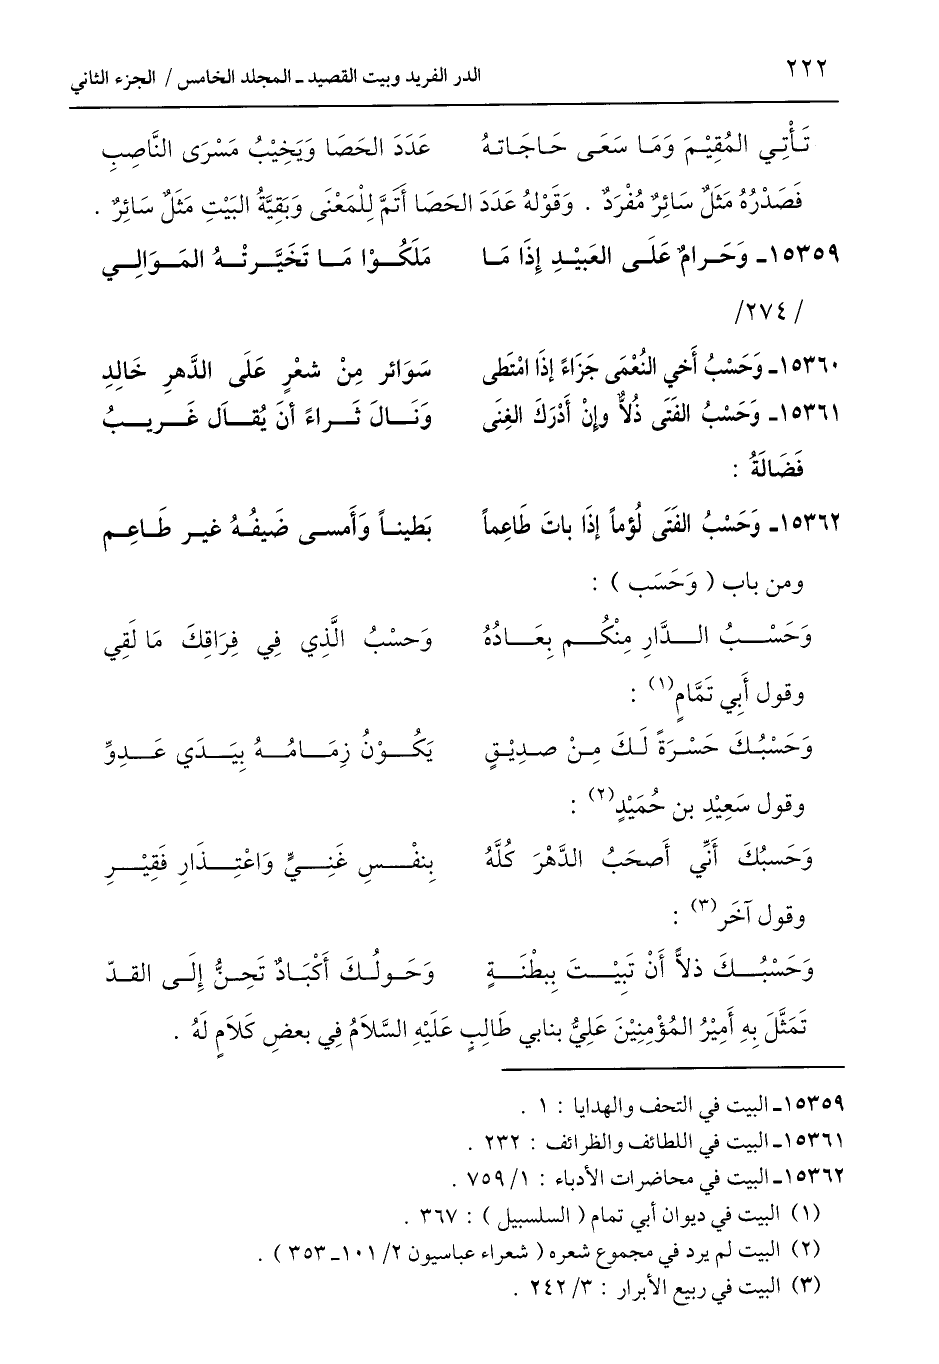 ٢٢٢ الدر الفريد وبيت القصيد ـ المجلد الخامس / الجزء الثاني
تَأْتِي المُقِيْمَ وَمَا سَعَى حَاجَاتهُ عَدَدَ الحَصَا وَيَخِيْبُ مَسْرَى النَّاصِبِ
فَصَدْرُهُ مَثَلٌ سَائِرٌ مُفْرَدٌ . وَقَوْلهُ عَدَدَ الحَصَا أَتَمَّ لِلْمَعْنَى وَبَقِيَّةُ البَيْتِ مَثَلٌ سَائِرٌ .
١٥٣٥٩ـ وَحَرامٌ عَلَى العَبِيْدِ إِذَا مَا مَلَكُوْا مَا تَخَيَّرتْهُ المَوَالِي
/ ٢٧٤/
١٥٣٦٠ـ وَحَسْبُ أَخي النُّعْمَى جَزَاءً إذَا امْتَطى سَوَائر مِنْ شعْرٍ عَلَى الدَّهرِ خَالِدِ
١٥٣٦١ـ وَحَسْبُ الفَتَى ذُلاًّ وإِنْ أَدْرَكَ الغِنَى وَنَالَ ثَراءً أنَ يُقَالَ غَريبُ
فَضَالَةُ :
١٥٣٦٢ـ وَحَسْبُ الفَتَى لُؤماً إذَا باتَ طَاعِماً بَطيناً وَأَمسى ضَيفُهُ غير طَاعِمِ
ومن باب ( وَحَسَب ) :
وَحَسْبُ الدَّارِ مِنْكُم بِعَادُهُ وَحسْبُ الَّذِي فِي فِرَاقِكَ مَا لَقِي
وقول أَبِي تَمَّامٍ(١) :
وَحَسْبُكَ حَسْرَةً لَكَ مِنْ صديْقٍ يَكُوْنُ زِمَامُهُ بِيَدَي عَدوِّ
وقول سَعِيْدِ بن حُمَيْدٍ(٢) :
وَحَسبُكَ أَنِّي أَصحَبُ الدَّهْرَ كُلَّهُ بِنفْسِ غَنِيٍّ وَاعْتِذَارِ فَقِيْرِ
وقول آخَر(٣) :
وَحَسْبُكَ ذلاًّ أَنْ تَبِيْتَ بِبطْنَةٍ وَحَولُكَ أَكْبَادٌ تَحِنُّ إِلَى القدّ
تَمَثَّلَ بِهِ أَمِيْرُ المُؤْمِنِيْنَ عَلِيُّ بنابي طَالِبٍ عَلَيْهِ السَّلاَمُ فِي بعضِ كَلاَمٍ لَهُ .
١٥٣٥٩ـ البيت في التحف والهدايا : ١ .
١٥٣٦١ـ البيت في اللطائف والظرائف : ٢٣٢ .
١٥٣٦٢ـ البيت في محاضرات الأدباء : ١/ ٧٥٩ .
(١) البيت في ديوان أبي تمام ( السلسبيل ) : ٣٦٧ .
(٢) البيت لم يرد في مجموع شعره ( شعراء عباسيون ٢/ ١٠١ـ ٣٥٣ ) .
(٣) البيت في ربيع الأبرار : ٣/ ٢٤٢ .